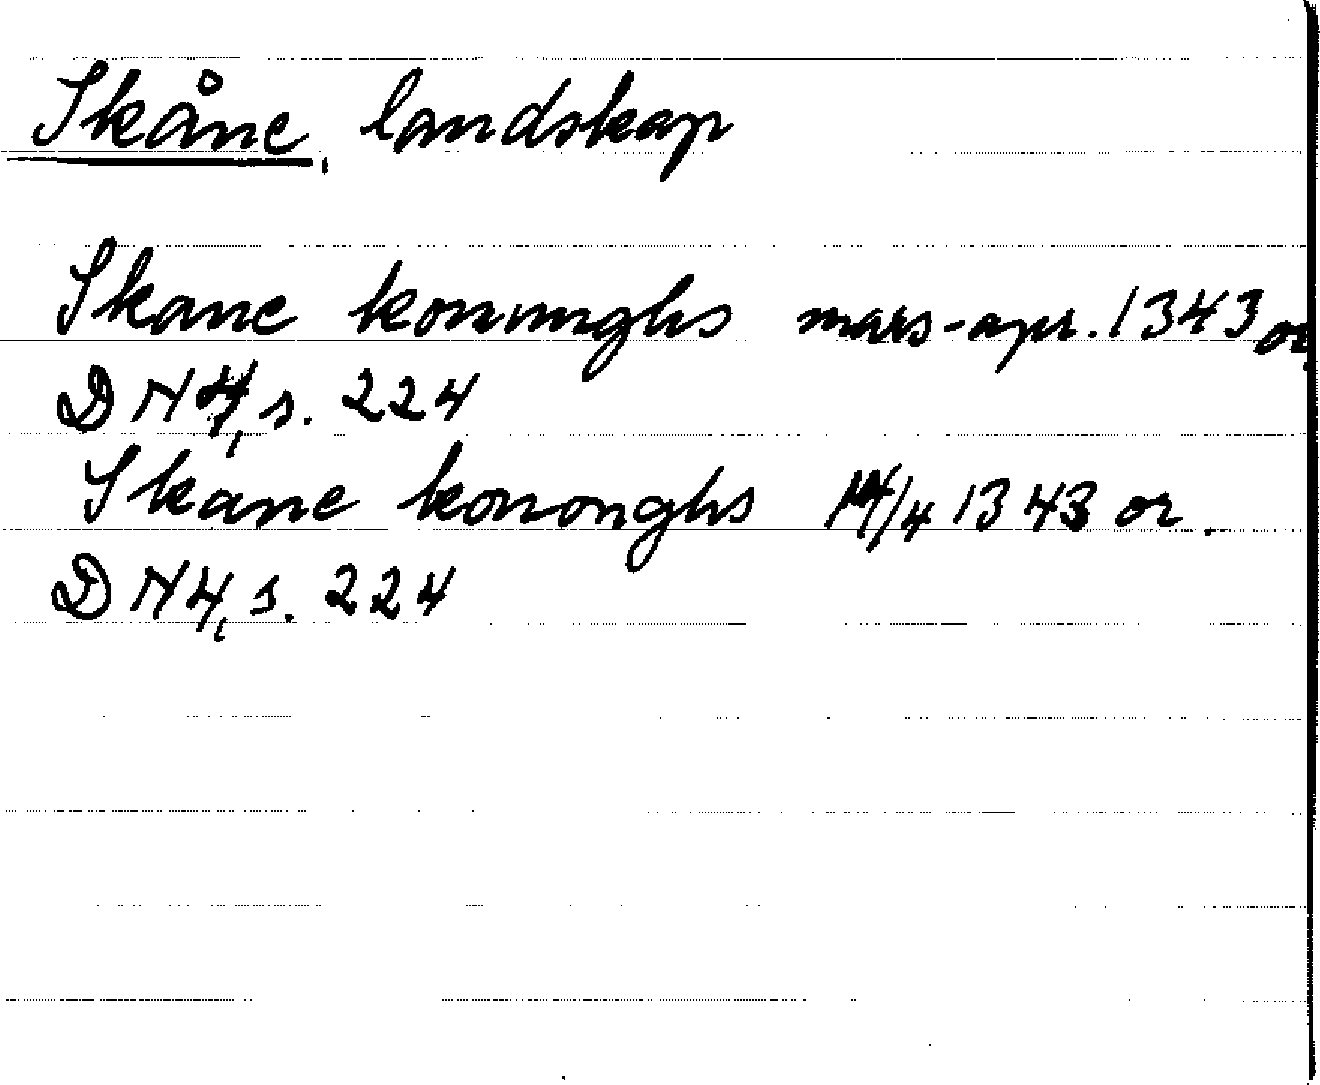 Skåne, landskap
Skane konunghs mars-apr. 1343 or.
DN 4, s. 224
Skane kononghs 14/4 1343 or.
DN 4, s. 224